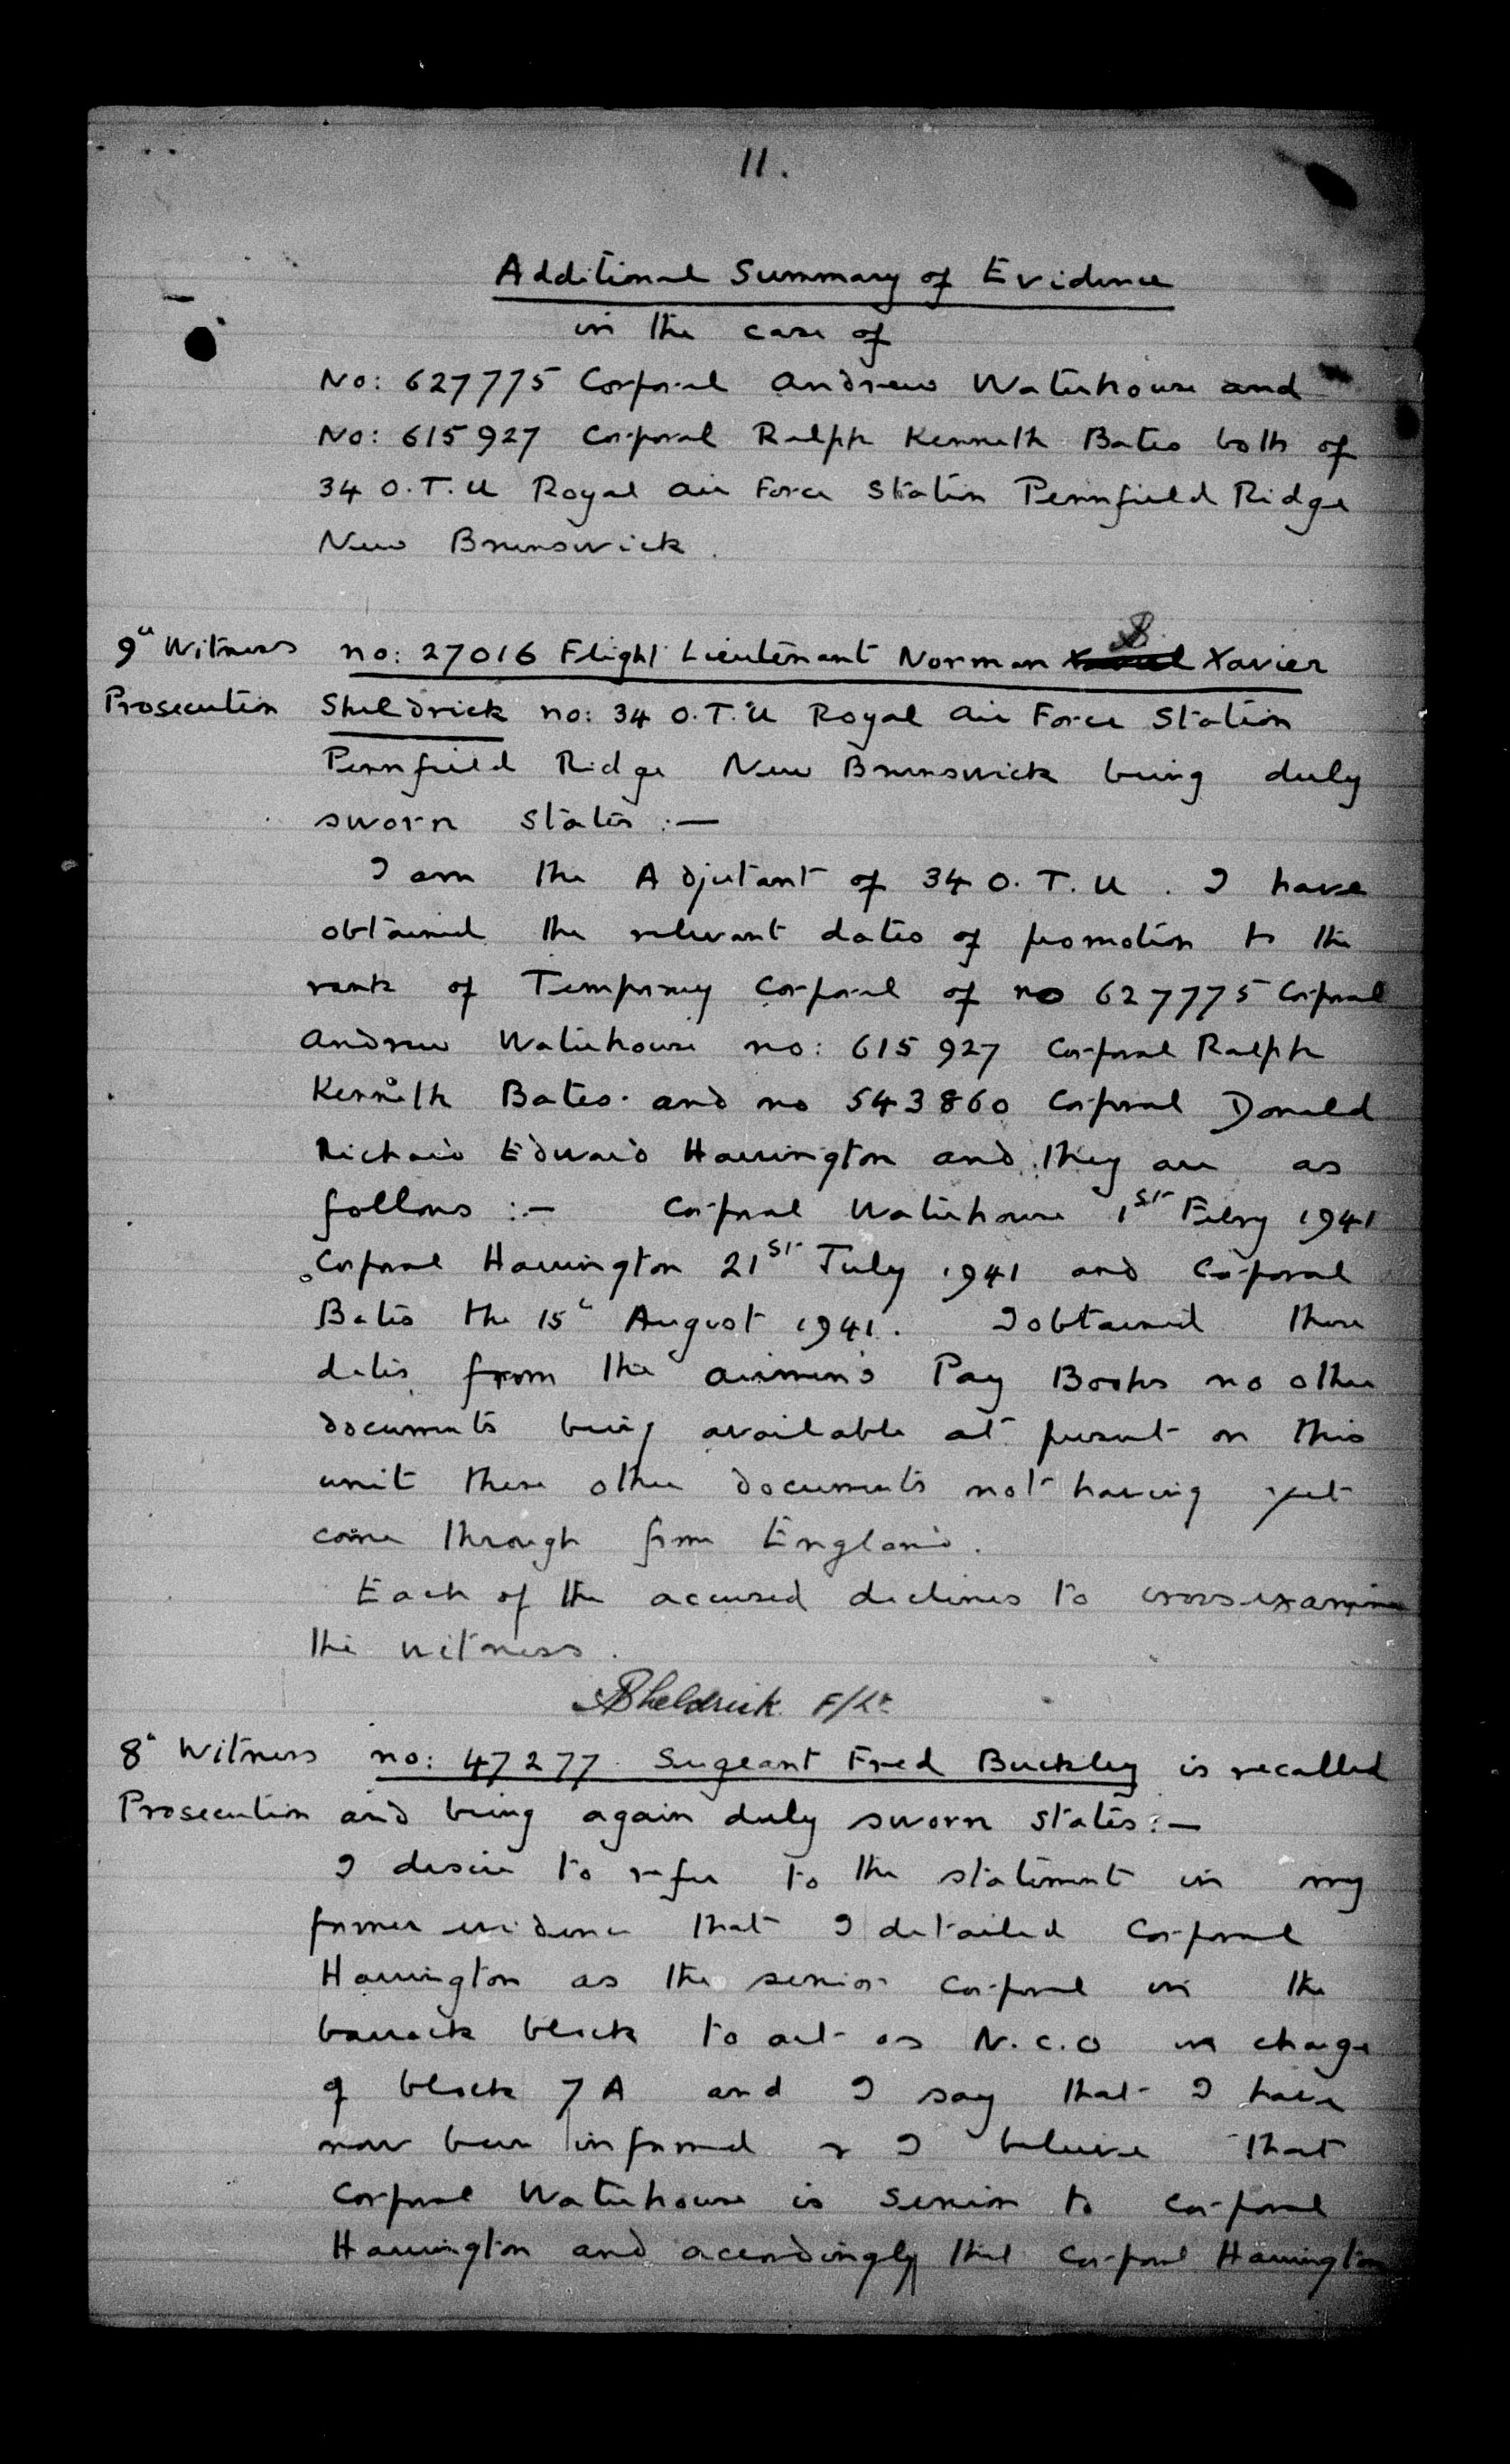 11.
Additional Summary of Evidence
in the case of
No: 627775 Corporal Andrew Waterhouse and
No: 615927 Corporal Ralph Kenneth Bates both of
34 O.T.U Royal Air Force Station Pennfield Ridge
New Brunswick.
9th Witness no: 27016 Flight Lieutenant Norman Xavier
Prosecution Sheldrick no: 34 O.T.U Royal Air Force Station
Pennfield Ridge New Brunswick being duly
sworn states :—
I am the Adjutant of 34 O.T.U. I have
obtained the relevant dates of promotion to the
rank of Temporary Corporal of no 627775 Corporal
Andrew Waterhouse no: 615927 Corporal Ralph
Kenneth Bates and no 543860 Corporal Donald
Richard Edward Harrington and they are as
follows :— Corporal Waterhouse 1st Febry 1941
Corporal Harrington 21st July 1941 and Corporal
Bates the 15th August 1941. I obtained these
dates from the airmen's Pay Books no other
documents being available at present on this
unit these other documents not having yet
come through from England.
Each of the accused declines to cross-examine
the witness.
Sheldrick F/Lt
8th Witness no: 47277 Sergeant Fred Buckley is recalled
Prosecution and being again duly sworn states:—
I desire to refer to the statement in my
former evidence that I detailed Corporal
Harrington as the senior Corporal in the
barrack block to act as N.C.O in charge
of block 7A and I say that I have
now been informed & I believe that
Corporal Waterhouse is senior to Corporal
Harrington and accordingly that Corporal Harrington